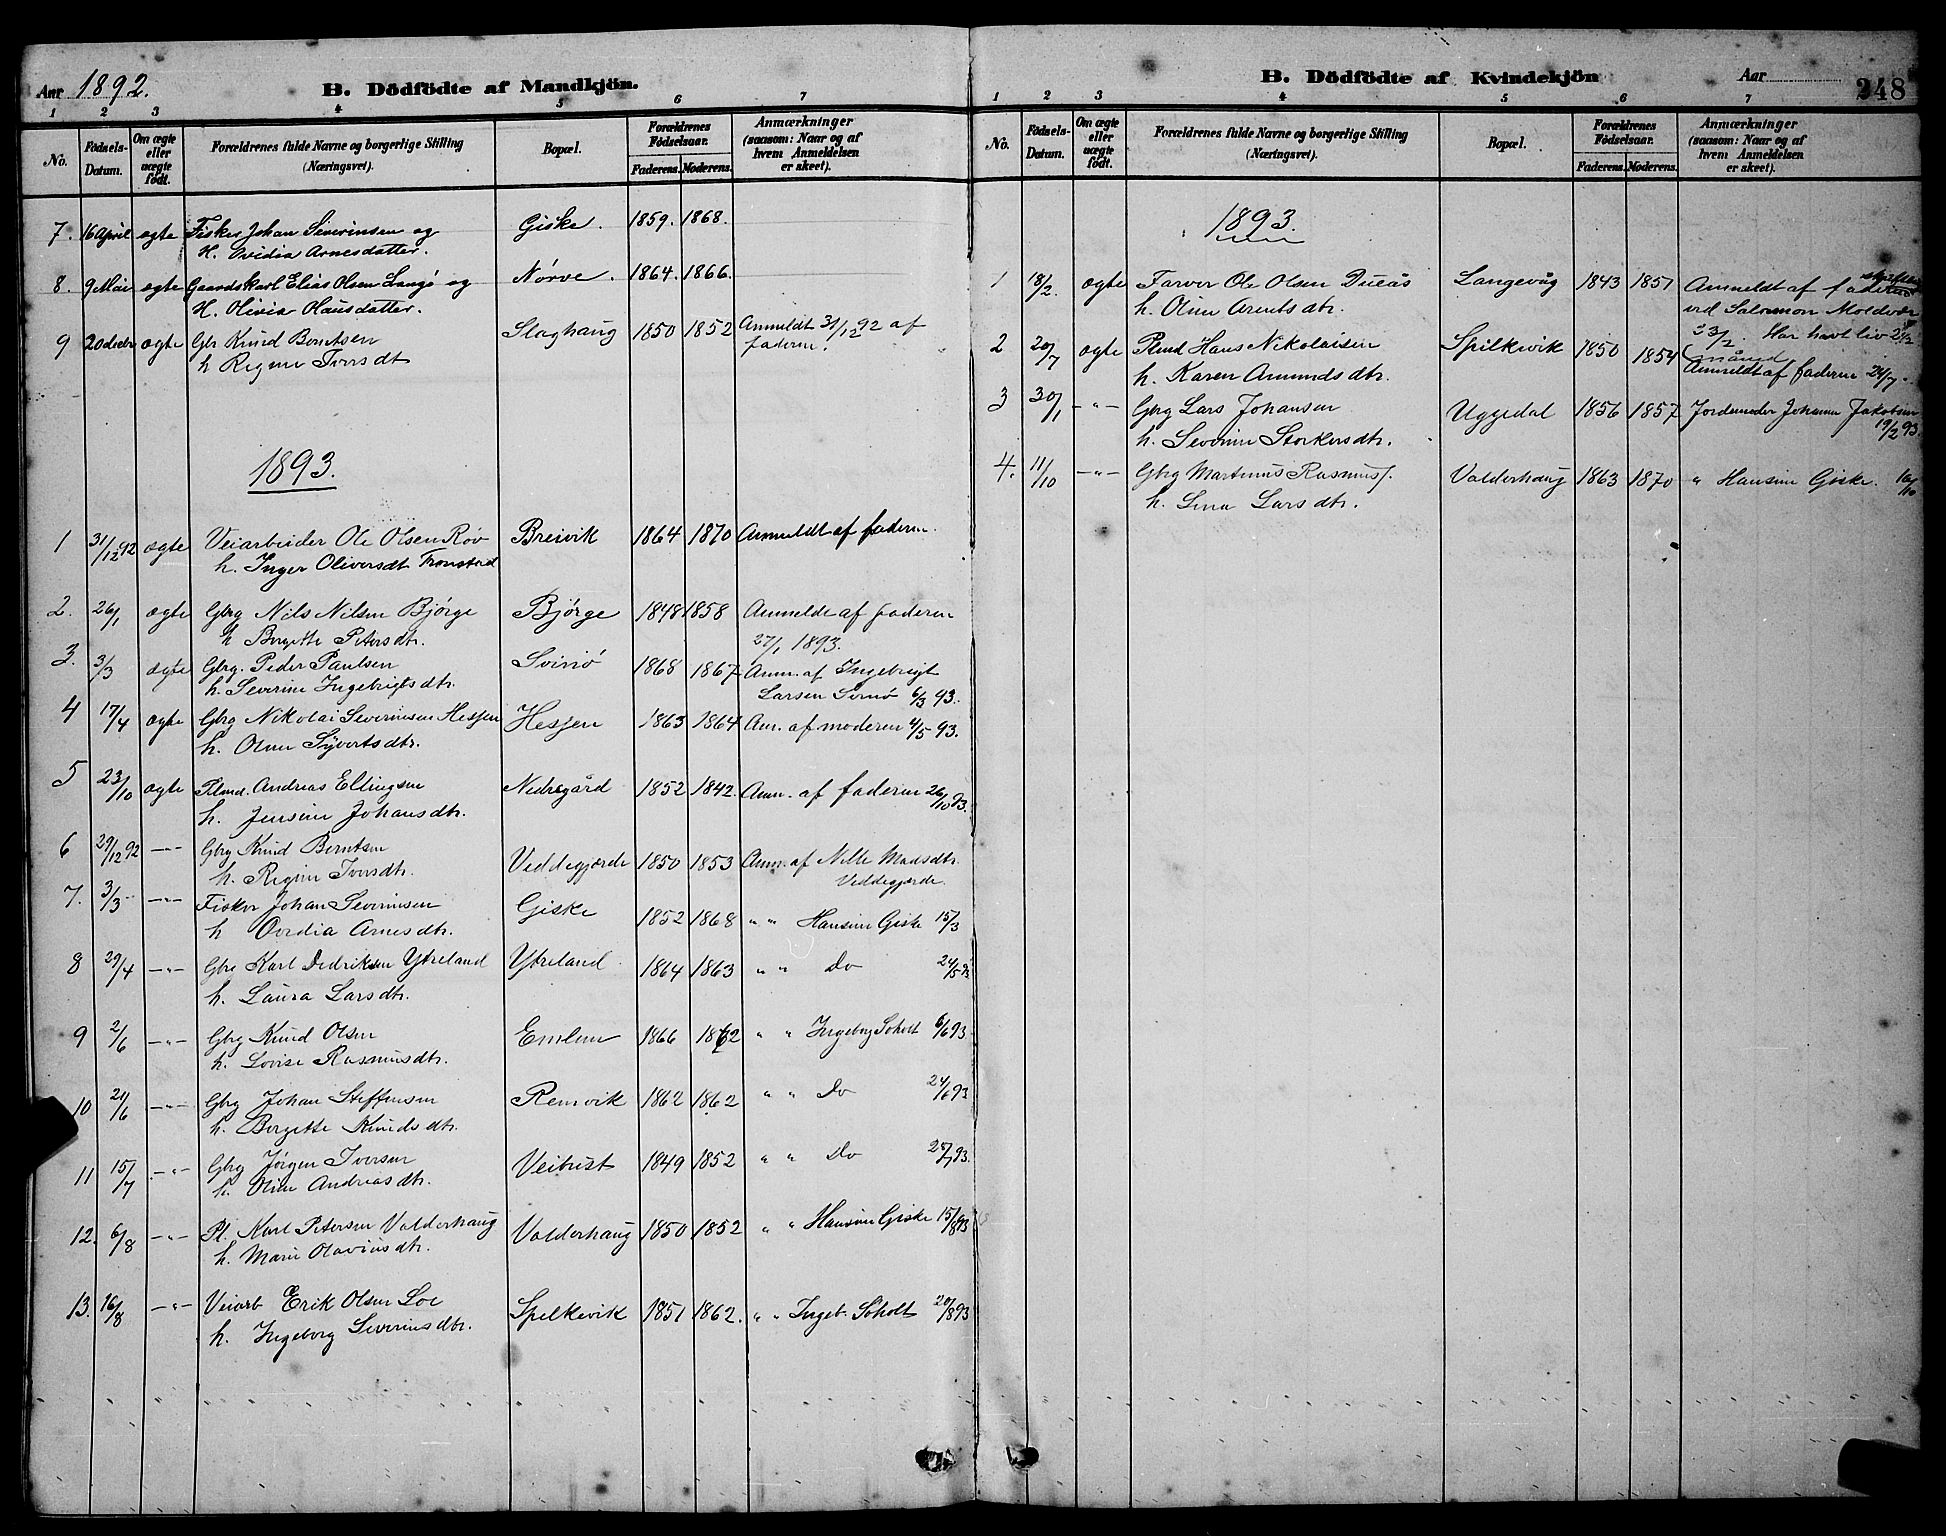 Aar 1892.
B. Dödfödte af Mandkjön.
1 2 3 4 5 6 7
No. Födsels-Datum. Om ægte eller uægte födt. Forældrenes fulde Navne og borgerlige Stilling (Næringsvei). Bopæl. Forældrenes Födselsaar. Faderens. Moderens. Anmærkninger (saasom: Naar og af hvem Anmeldelsen er skeet).
7. 16 April ægte Fisker Johan Severinsen og Giske. 1859. 1868.
H. Ovidia Arnesdatter.
8. 9 Mai ægte Gaardskarl Elias Olsen Langö og Nørve. 1864. 1866.
H. Olivia Hansdatter.
9 20 decbr ægte Gbr Knud Berntsen Slaghaug 1850 1852 Anmeldt 31/12 92 af
h Regine Iversdt faderen.
1893.
1 31/12 92 ægte Veiarbeider Ole Olsen Röv Breivik 1864 1870 Anmeldt af faderen.
h. Inger Oliversdt Tronstad
2. 26/1 ægte Gbrg Nils Nilsen Bjørge Bjørge 1848 1858 Anmeldt af faderen
h Bergitte Petersdtr. 27/1 1893.
3. 3/3 ægte Gbrg. Peder Paulsen Svinö 1868 1867 Anm. af Ingebrigt
h. Severine Ingebrigtsdtr. Larsen Svinö 6/3 93.
4 17/4 ægte Gbrg Nikolai Severinsen Hessen Hessen 1863 1864 Anm. af moderen 4/5 93.
h. Oline Syvertsdtr.
5 23/10 ægte Plmd. Andreas Ellingsen Nedregård 1852 1842. Anm. af faderen 26/10 93.
h. Jensine Johansdtr.
6 29/12 92 -"- Gbrg Knud Berntsen Veddegjærde 1850 1853 Anm. af Nille Madsdtr.
h. Regine Iversdtr. Veddegjærde.
7. 3/3 -"- Fisker Johan Severinsen Giske 1852 1868 " " Hansine Giske 15/3
h Ovidia Arnesdtr.
8 29/4 -"- Gbrg Karl Didriksen Ytreland Ytreland 1864 1863 " " Do 24/5 93
h. Laura Larsdtr.
9 2/6 -"- Gbrg Knud Olsen Emlem 1866 1862 " " Ingeborg Soholt 6/6 93
h. Lovise Rasmusdtr.
10 21/6 -"- Gbrg Johan Steffensen Remvik 1862 1862 " " Do 24/6 93
h. Bergitte Knudsdtr.
11 15/7 -"- Gbrg Jörgen Iversen Veibust 1849 1852 " " Do 25/7 93.
h. Oline Andreasdtr.
12. 6/8 -"- Pl. Karl Petersen Valderhaug Valderhaug 1850 1852 " " Hansine Giske 15/8 93
h. Marie Olavinsdtr.
13. 16/8 -"- Veiarb Erik Olsen Loe Spelkevik 1851 1862. " " Ingeb. Soholt 20/8 93
h. Ingeborg Severinsdtr.
B. Dödfödte af Kvindekjön Aar
248
1 2 3 4 5 6 7
No. Födsels-Datum. Om ægte eller uægte födt. Forældrenes fulde Navne og borgerlige Stilling (Næringsvei). Bopæl. Forældrenes Födselsaar. Faderens. Moderens. Anmærkninger (saasom: Naar og af hvem Anmeldelsen er skeet).
1893.
1 18/2. ægte Farver Ole Olsen Langevåg 1843 1851 Anmeldt af faderen
h. Oline Arntsdtr. ved Salomon Moldvær
23/2. Har havt liv
måned
2 20/7 ægte Plmd Hans Nikolaisen Spilkevik 1850 1854 Anmeldt af faderen 24/7.
h. Karen Amundsdtr.
3 30/1 -"- Gbrg Lars Johansen Uggedal 1856 1857 Jordemoder Johanne Jakobsen
h. Severine Storkersdtr. 19/2 93
4. 11/10 -"- Gbrg Martinus Rasmuss. Valderhaug 1863 1870 " Hansine Giske. 16/10
h. Lina Larsdtr.